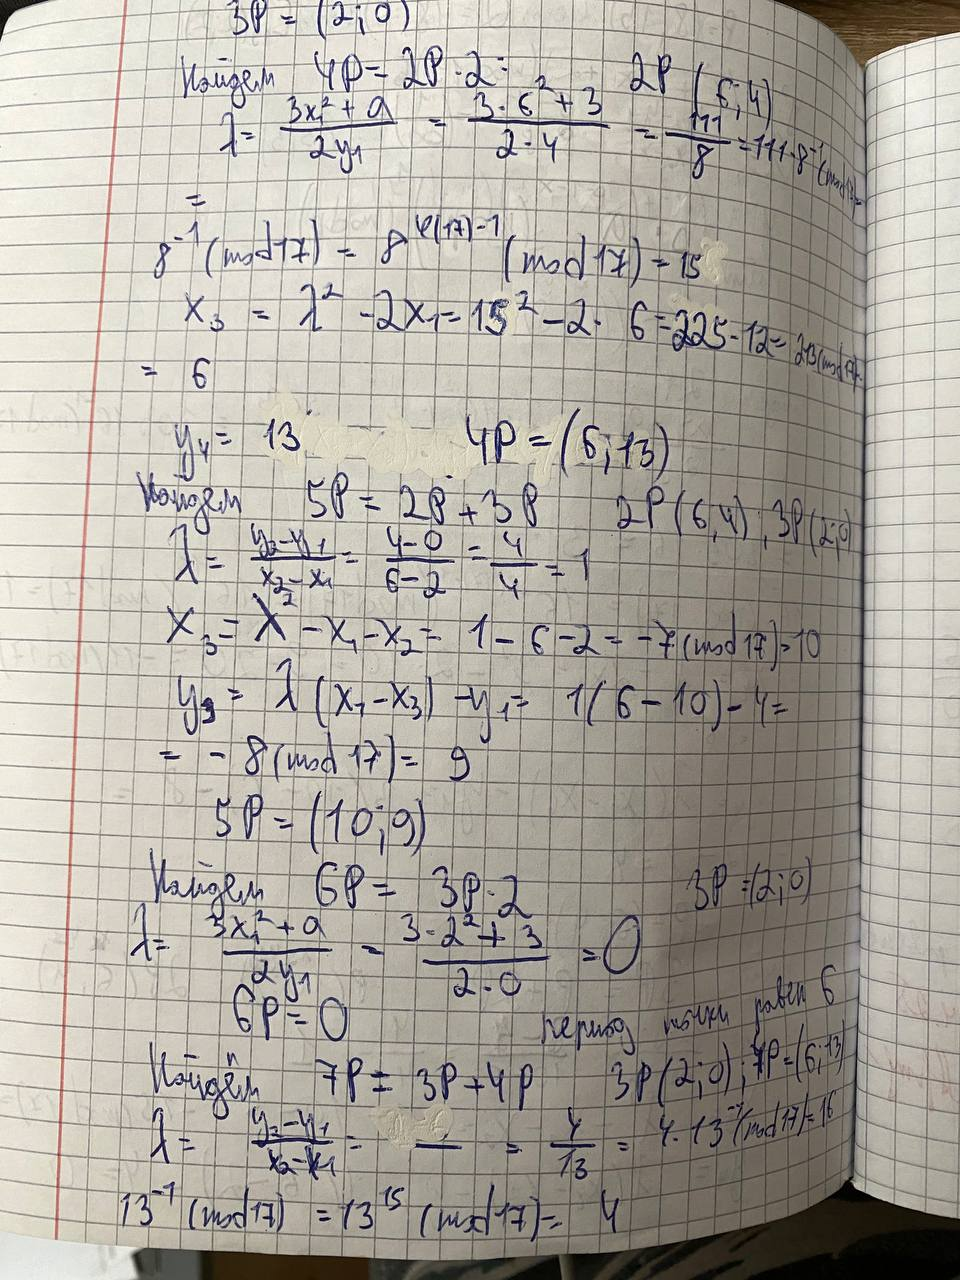 3P = (2;0)
Найдем 4P = 2P·2: 2P (6;4)
λ = (3x₁² + a)/(2y₁) = (3·6² + 3)/(2·4) = 111/8 = 111·8⁻¹ (mod 17) =
=
8⁻¹ (mod 17) = 8^(φ(17)-1) (mod 17) = 15
x₃ = λ² - 2x₁ = 15² - 2· 6 = 225 - 12 = 213 (mod 17) =
= 6
y₄ = 13 4P = (6;13)
Найдем 5P = 2P + 3P 2P(6;4) ; 3P(2;0)
λ = (y₂-y₁)/(x₂-x₁) = (4-0)/(6-2) = 4/4 = 1
x₃ = λ² - x₁ - x₂ = 1 - 6 - 2 = -7 (mod 17) = 10
y₃ = λ (x₁ - x₃) - y₁ = 1(6 - 10) - 4 =
= - 8 (mod 17) = 9
5P = (10;9)
Найдем 6P = 3P·2 3P = (2;0)
λ = (3x₁² + a)/(2y₁) = (3·2² + 3)/(2·0) = O
6P = O период точки равен 6
Найдём 7P = 3P + 4P 3P(2;0) ; 7P = (6;13)
λ = (y₂-y₁)/(x₂-x₁) = — = 4/13 = 4·13⁻¹ (mod 17) = 16
13⁻¹ (mod 17) = 13¹⁵ (mod 17) = 4